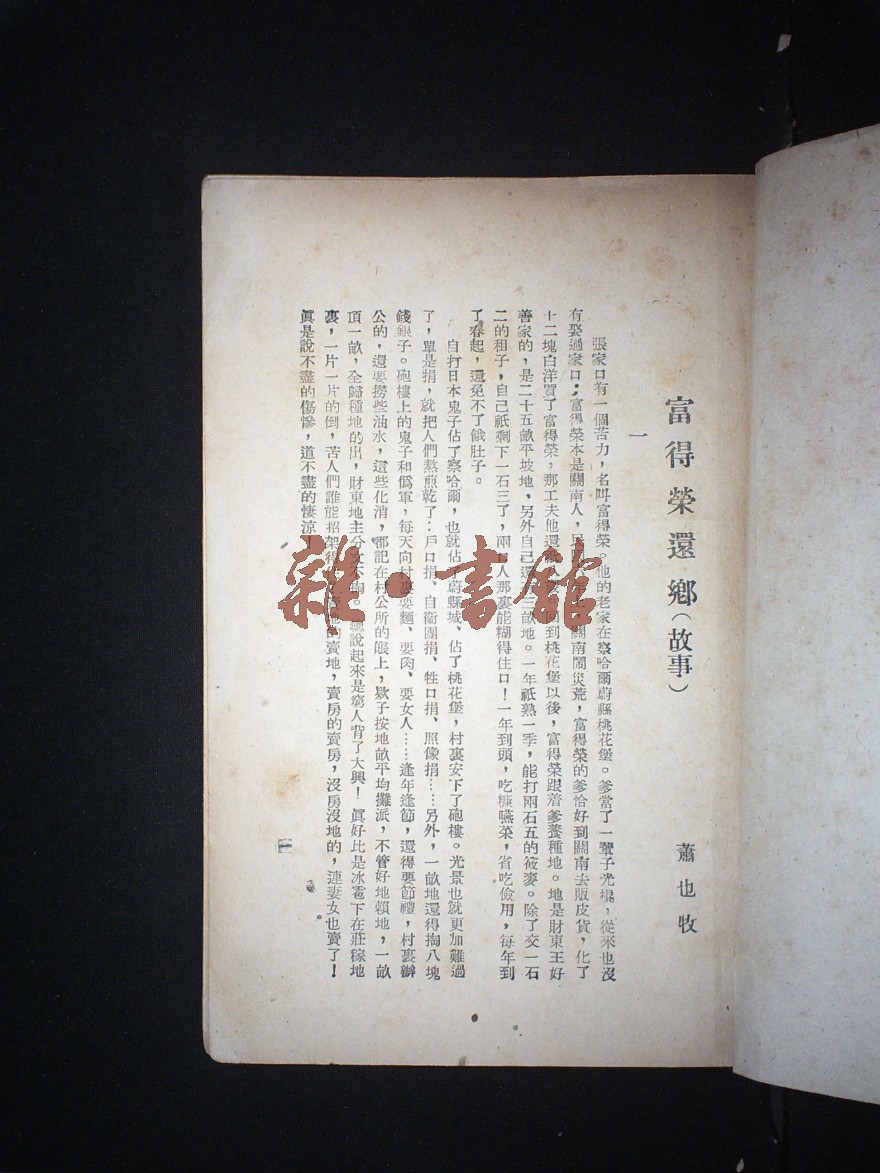 富得榮還鄉（故事）
蕭也牧
一
張家口有一個苦力，名叫富得榮。他的老家在察哈爾蔚縣桃花堡。爹當了一輩子光棍，從來也沒
有娶過家口；富得榮本是關南人，民國 關南鬧災荒，富得榮的爹恰好到關南去販皮貨，化了
十二塊白洋買了富得榮，那工夫他還 回到桃花堡以後，富得榮跟着爹養種地。地是財東王好
善家的，是二十五畝平坡地，另外自己還 三畝地。一年祇熟一季，能打兩石五的莜麥。除了交一石
二的租子，自己祇剩下一石三了，兩口人那裏能糊得住口！一年到頭，吃糠嚥菜，省吃儉用，每年到
了春起，還免不了餓肚子。
自打日本鬼子佔了察哈爾，也就佔了蔚縣城、佔了桃花堡，村裏安下了砲樓。光景也就更加難過
了，單是捐，就把人們熬煎乾了：戶口捐、自衞團捐、牲口捐、照像捐……另外，一畝地還得掏八塊
錢銀子。砲樓上的鬼子和僞軍，每天向村裏要麵、要肉、要女人……逢年逢節，還得要節禮，村裏辦
公的，還要撈些油水，這些化消，都記在村公所的賬上，歀子按地畝平均攤派，不管好地賴地，一畝
頂一畝，全歸種地的出，財東地主分文不 。總說起來是窮人背了大興！眞好比是冰雹下在莊稼地
裏，一片一片的倒，苦人們誰能招架得 地的賣地，賣房的賣房，沒房沒地的，連妻女也賣了！
眞是說不盡的傷慘，道不盡的悽涼！
雜·書館